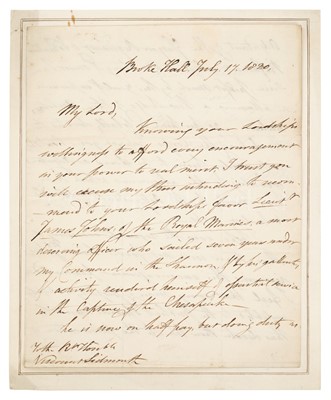 Broke Hall July 17. 1820.
My Lord,
Knowing your Lordships
willingness to afford every encouragement
in your power to real merit, I trust you
will excuse my thus intruding to recom-
mend to your Lordships favor Lieut.t
James Johns of the Royal Marines, a most
deserving officer who sailed seven years under
my command in the Shannon, & by his gallantry
& activity rendered himself of essential service
in the Capture of the Chesapeake.
he is now on half pay, but doing duty as
To the R.t Hon.ble
Viscount Sidmouth